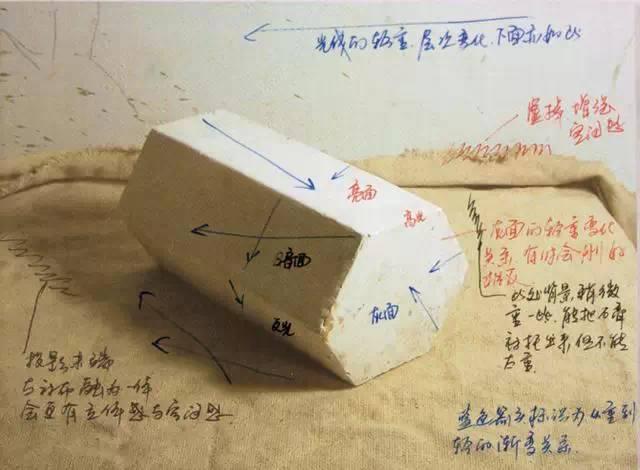 光线的轻重、层次变化、下面亦如此
虚接 增强
空间感
亮面
高光
灰面的轻重变化
关系,有时会别的
暗面
反光
灰面
此处背景稍微
重一些,能把石膏
衬托出来但不能
太重.
投影末端
与衬布融为一体
会更有立体感与空间感.
蓝色箭头标识为从重到
轻的渐变关系.